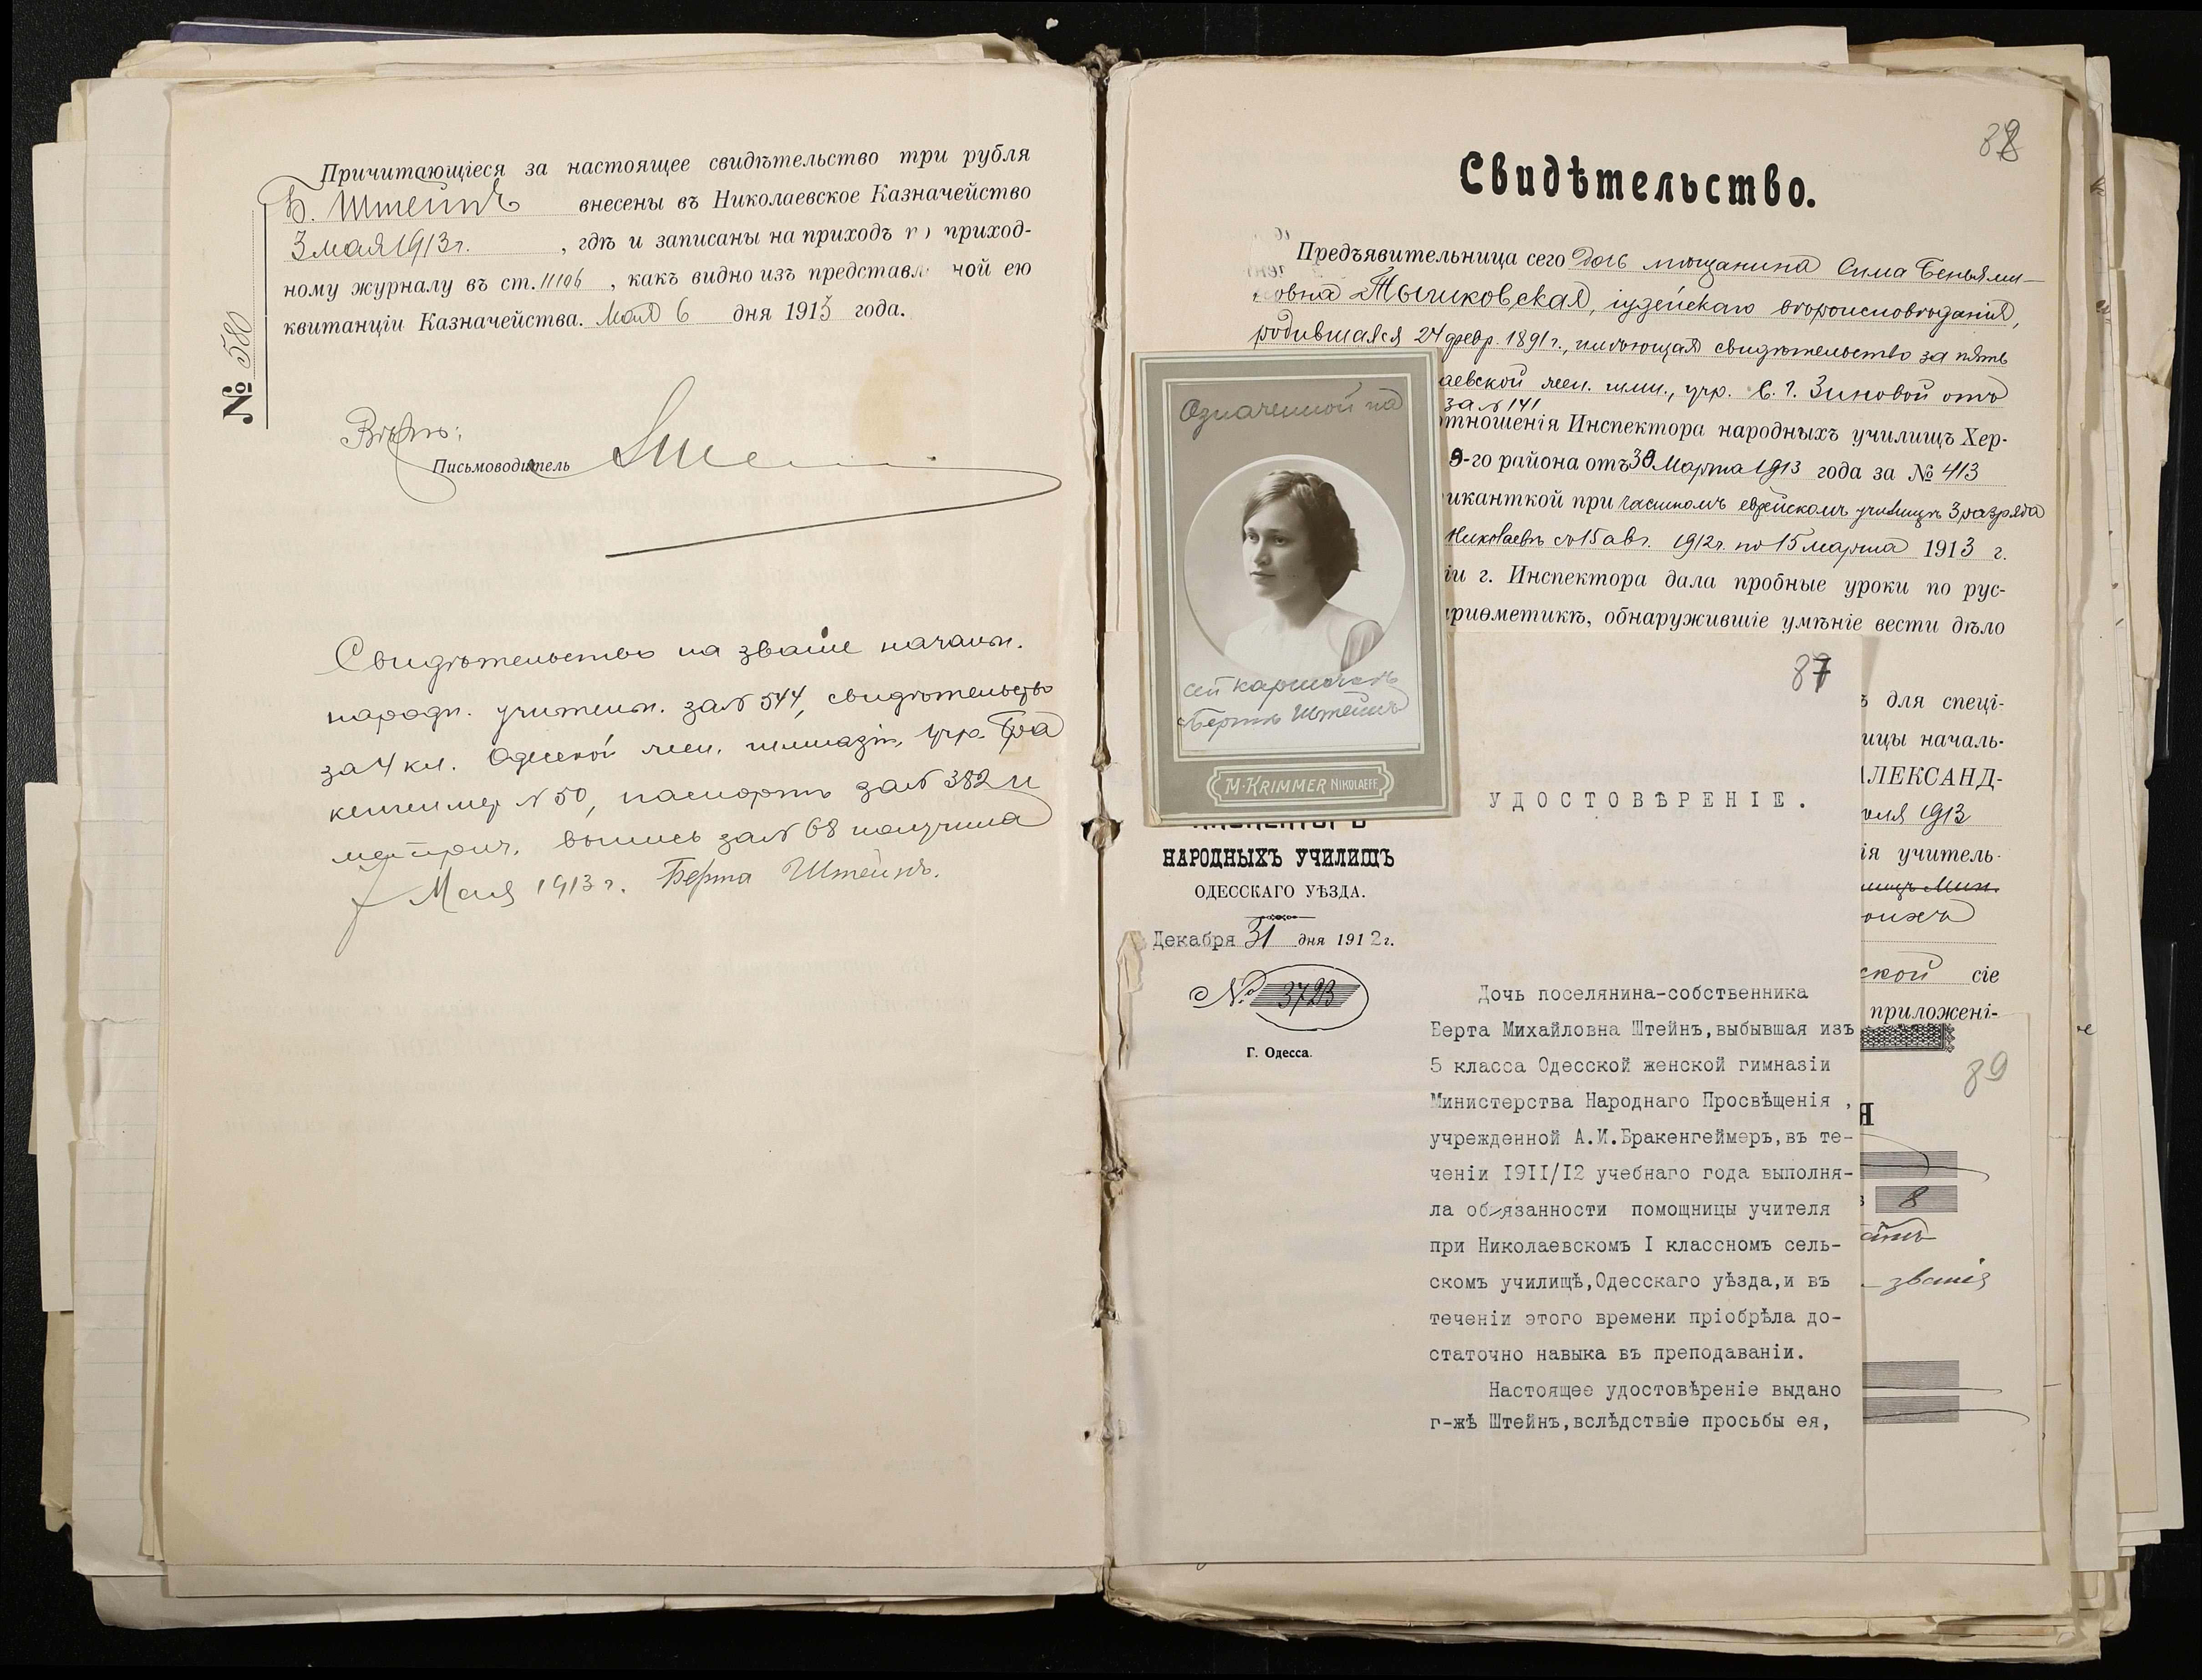 Причитающіеся за настоящее свидѣтельство три рубля
Б. Штейнъ внесены въ Николаевское Казначейство
3 мая 1913 г. , гдѣ и записаны на приходъ п) приход-
ному журналу въ ст. 11106 , какъ видно из представл ной ею
квитанціи Казначейства. Мая 6 дня 1913 года.
№ 580
Вѣрно:
Письмоводитель
Свидѣтельство на званіе начальн.
народн. учительн. за № 544, свидѣтельство
за 4 кл. Одесской жен. гимназіи, учр. Бра
кенгеймер № 50, паспортъ за № 382 и
метрич. выпись за № 68 получила
7 Мая 1913 г. Берта Штейнъ.
88
Свидѣтельство.
Предъявительница сего дочь мѣщанина Сима Беньями-
овна Тышковская, іудейскаго вѣроисповѣданія,
родившаяся 24 февр. 1891 г., имѣющая свидѣтельство за пять
аевской жен. гимн., учр. С. Г. Зиновой отъ
за № 141
отношенія Инспектора народныхъ училищъ Хер-
9-го района отъ 30 Марта 1913 года за № 413
иканткой при частномъ еврейскомъ училищѣ 3 разряда
Николаевѣ съ 15 авг. 1912 г. по 15 марта 1913 г.
іи г. Инспектора дала пробные уроки по рус-
риѳметикѣ, обнаружившіе умѣніе вести дѣло
ъ для спеці-
ицы началь-
АЛЕКСАНД-
еля 1913
ія учитель-
ищъ Мин.
ской сіе
приложені-
Означенной на
сей карточкѣ
Бертѣ Штейнъ
M. KRIMMER NIKOLAEFF.
87
УДОСТОВѢРЕНІЕ.
НАРОДНЫХЪ УЧИЛИЩЪ
ОДЕССКАГО УѢЗДА.
Декабря 31 дня 1912 г.
№ 3723
Г. Одесса.
Дочь поселянина-собственника
Берта Михайловна Штейнъ,выбывшая изъ
5 класса Одесской женской гимназіи
Министерства Народнаго Просвѣщенія ,
учрежденной А.И.Бракенгеймеръ,въ те-
ченіи 1911/12 учебнаго года выполня-
ла обязанности помощницы учителя
при Николаевскомъ I классномъ сель-
скомъ училищѣ,Одесскаго уѣзда,и въ
теченіи этого времени пріобрѣла до-
статочно навыка въ преподаваніи.
Настоящее удостовѣреніе выдано
г-жѣ Штейнъ,вслѣдствіе просьбы ея,
89
Я
8
званія